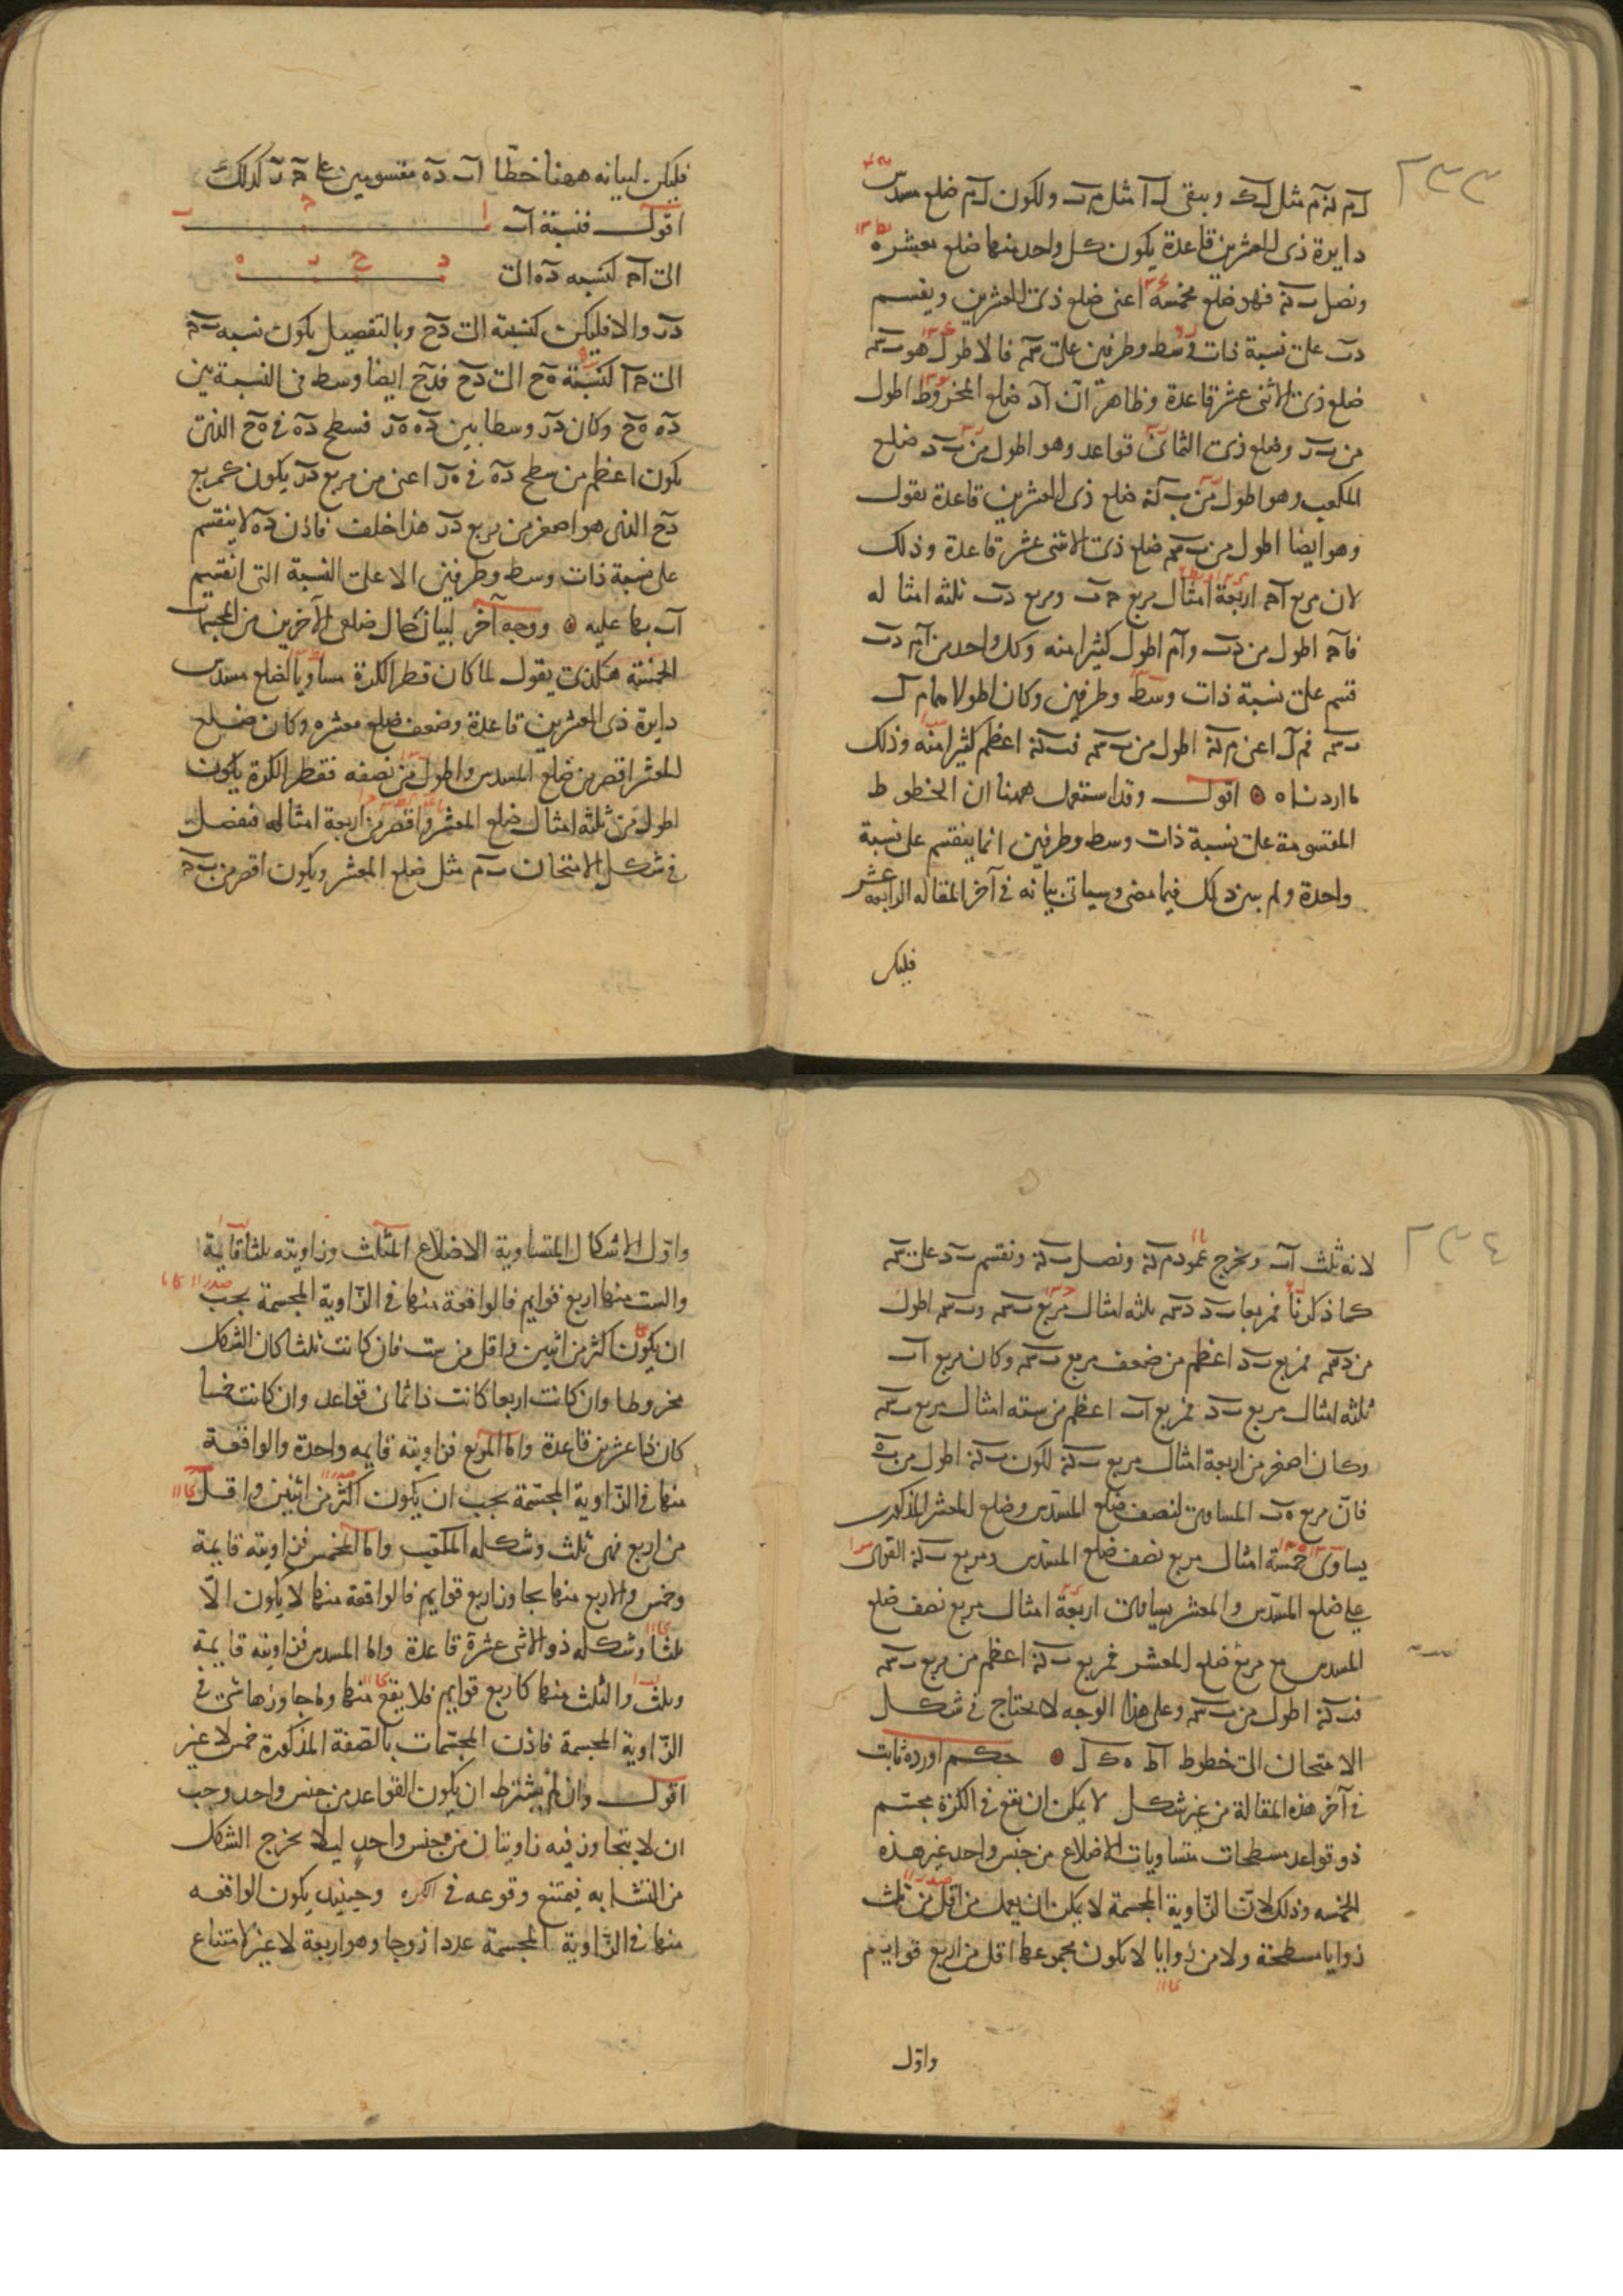 ٢٣٣
لم نم مثل لك ويبقى لا مثل م ب ولكون لم ضلع مسدس
دايرة ذى العشرين قاعدة يكون كل واحد منهما ضلع معشره
ونصل ب ن فهو ضلع مخمسه اعنى ضلع ذى العشرين ويقسم
د ب على نسبة ذات وسط وطرفين على س فالاطول هو ب س
ضلع ذى الاثنى عشر قاعدة وظاهر ان اد ضلع المخروط اطول
من ب ر وضلع ذى الثمانى قواعد وهو اطول من ب د ضلع
المكعب وهو اطول من ب ن ضلع ذى العشرين قاعدة نقول
وهو ايضا اطول من ب س ضلع ذى الاثنى عشر قاعدة وذلك
لان مربع اح اربعة امثال مربع ح ب ومربع د ب ثلثه امثا له
فاح اطول من د ب وام اطول كثيرا منه وكل واحد من ام د ب
قسم على نسبة ذات وسط وطرفين وكان اطولاهما م ل
ب س فم ل اعنى م ن اطول من ب س فب ن اعظم كثيرا منه وذلك
ما اردناه اقول وقد استعمل ههنا ان الخطوط
المقسومة على نسبة ذات وسط وطرفين انما ينقسم على نسبة
واحدة ولم يبين ذلك فيما مضى وسياتى بيانه فى آخر المقاله الرابعه عشر
فليكن
فليكن لبيانه ههنا خطا اب ده مقسومين على ح ر كذلك
اقول فنسبة اب
الى اح كنسبه ده الى
در والا فليكن كنسبة الى دح وبالتفصيل يكون نسبه ب ح
الى ح ا كنسبة ه ح الى دح فدح ايضا وسط فى النسبة بين
ده ه ح وكان در وسطا بين ده ه ر فسطح ده فى ه ح الذى
يكون اعظم من سطح ده فى ه ر اعنى من مربع در يكون كمربع
دح الذى هو اصغر من مربع در هذا خلف فاذن ده لا ينقسم
على نسبة ذات وسط وطرفين الا على النسبة التى انقسم
اب بها عليه ووجه آخر لبيان حال ضلعى الآخرين من المجسمات
الخمسة هكذى يقول لما كان قطر الكرة مساويا لضلع مسدس
دايرة ذى العشرين قاعدة وضعف ضلع معشره وكان ضلع
المعشر اقصر من ضلع المسدس واطول من نصفه فقطر الكرة يكون
اطول من ثلثه امثال ضلع المعشر واقصر من اربعة امثاله فنفصل
فى شكل الامتحان ب م مثل ضلع المعشر ويكون اقصر من ب ح
٢٣٤
لانه ثلث اب ونخرج عمود م ن ونصل ب ن ونقسم ب د على س
كما ذكرنا فمربعا ب د د س ثلثه امثال مربع ب س وب س اطول
من د س فمربع ب د اعظم من ضعف مربع ب س وكان مربع اب
ثلثه امثال مربع ب د فمربع اب اعظم من سته امثال مربع ب س
وكان اصغر من اربعة امثال مربع ب ن لكون ب ن اطول من ب ه
فان مربع ه ب المساوى لنصف ضلع المسدس وضلع المعشر المذكور
يساوى خمسة امثال مربع نصف ضلع المسدس ومربع ب ن القوى
على ضلع المسدس والمعشر يساوى اربعة امثال مربع نصف ضلع
المسدس مع مربع ضلع المعشر فمربع ب ن اعظم من مربع ب س
فب ن اطول من ب س وعلى هذا الوجه لا يحتاج فى شكل
الامتحان الى خطوط اط ه ك ل حكم اورده ثابت
فى آخر هذه المقالة من غير شكل لا يمكن ان يقع فى الكرة مجسم
ذو قواعد مسطحات متساويات الاضلاع من جنس واحد غير هذه
الخمسه وذلك لان الزاوية المجسمة لا يمكن ان يعمل من اقل من ثلث
زوايا مسطحة ولا من زوايا لا يكون مجموعها اقل من اربع قوايم
واول
واول الاشكال المتساوية الاضلاع المثلث وزاويته ثلثا قايمة
والست منها اربع قوايم فالواقعة منها فى الزاوية المجسمة يجب
ان يكون اكثر من اثنين واقل من ست فان كانت ثلثا كان الشكل
مخروطا وان كانت اربعا كانت ذا ثمانى قواعد وان كانت خمسا
كان ذا عشرين قاعدة واما المربع فزاويته قايمه واحدة والواقعة
منها فى الزاوية المجسمة يجب ان يكون اكثر من اثنين واقل
من اربع فهى ثلث وشكله المكعب واما المخمس فزاويته قايمة
وخمس والاربع منها يجاوز اربع قوايم فالواقعة منها لا يكون الا
ثلثا وشكله ذو الاثنى عشرة قاعدة واما المسدس فزاويته قايمة
وثلث والثلث منها كاربع قوايم فلا يقع منها وما جاوزها شئ فى
الزاوية المجسمة فاذن المجسمات بالصفة المذكورة خمس لا غير
اقول وان لم يشترط ان يكون القواعد من جنس واحد وجب
ان لا يتجاوز فيه زاويتان من جنس واحد ليلا يخرج الشكل
من التشابه فيمتنع وقوعه فى الكره وحينئذ يكون الواقعه
منها فى الزاوية المجسمة عددا زوجا وهو اربعة لا غير لامتناع